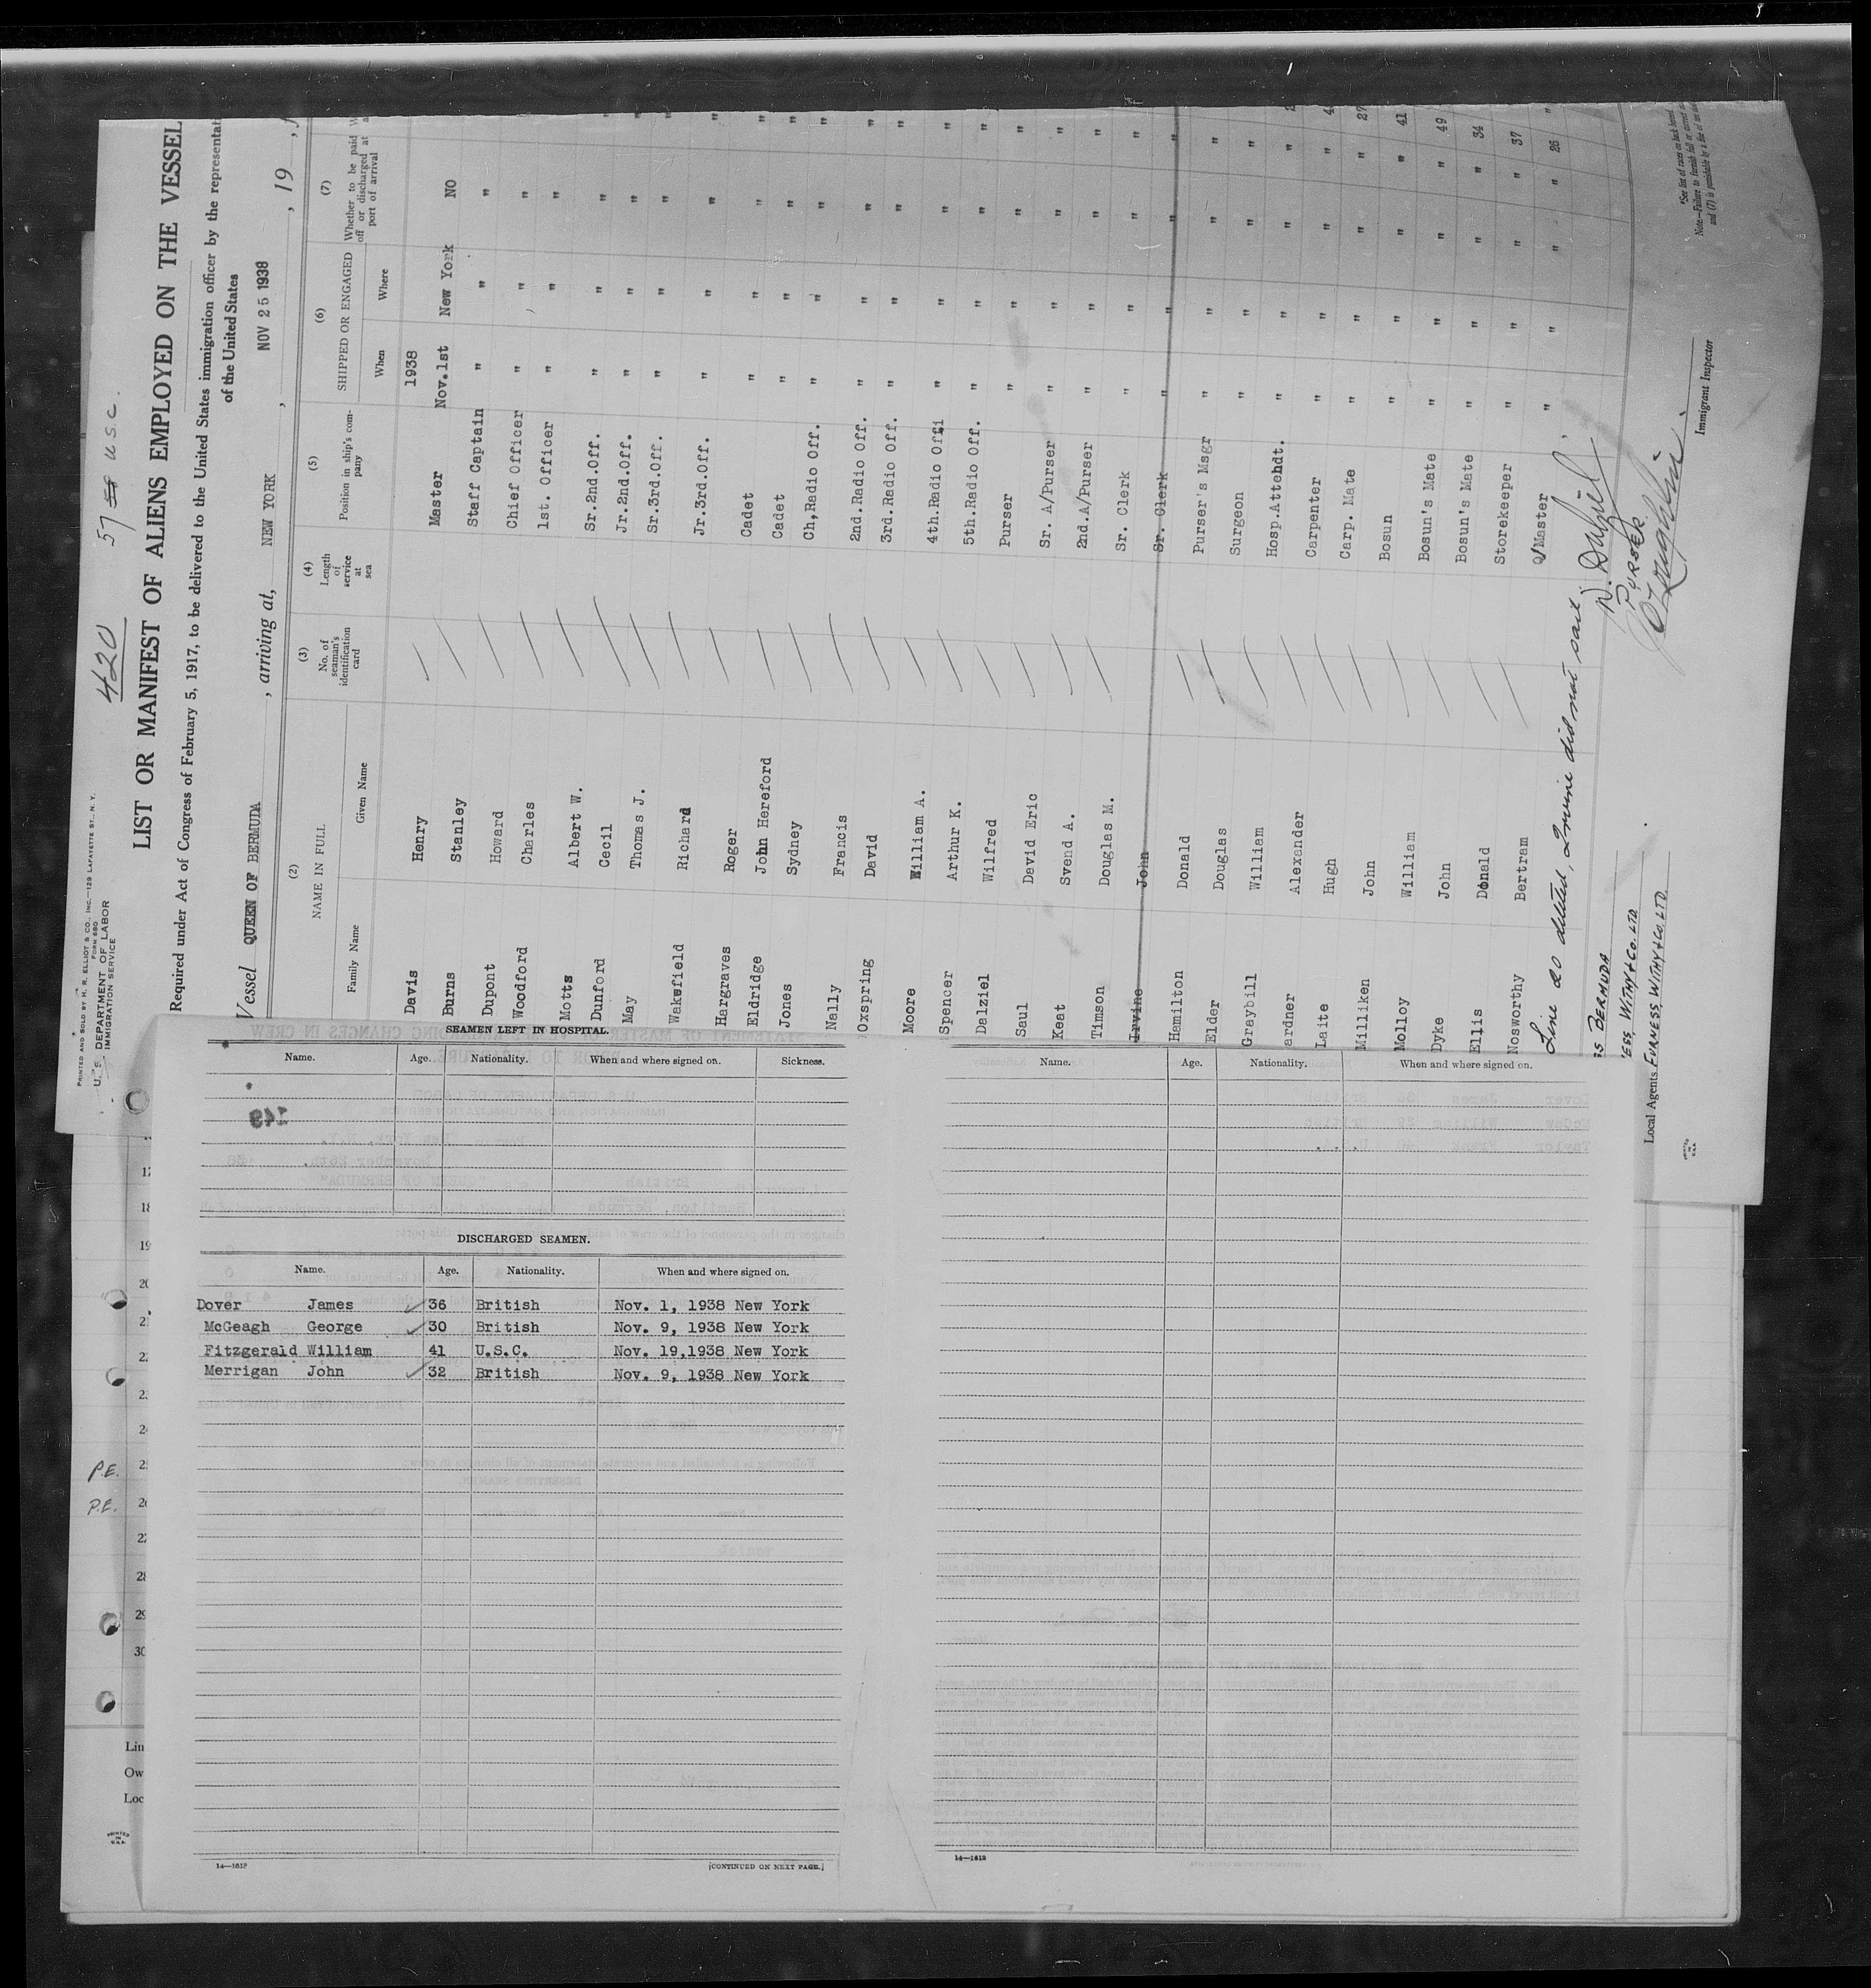 PRINTED AND SOLD BY H. R. ELLIOT & CO., INC.-129 LAFAYETTE ST., N. Y.
FORM 680
U. S. DEPARTMENT OF LABOR
IMMIGRATION SERVICE
420
57 58 U.S.C.
LIST OR MANIFEST OF ALIENS EMPLOYED ON THE VESSEL
Required under Act of Congress of February 5, 1917, to be delivered to the United States immigration officer by the representati
of the United States
Vessel QUEEN OF BERMUDA, arriving at, NEW YORK, NOV 25 1938, 19
(2) NAME IN FULL
Family Name Given Name
(3) No. of seaman's identification card
(4) Length of service at sea
(5) Position in ship's company
(6) SHIPPED OR ENGAGED
When Where
(7) Whether to be paid off or discharged at port of arrival
1938
Davis Henry Master Nov.1st New York NO
Burns Stanley Staff Captain " " "
Dupont Howard Chief Officer " " "
Woodford Charles 1st. Officer " " "
Motts Albert W. Sr.2nd.Off. " " "
Dunford Cecil Jr.2nd.Off. " " "
May Thomas J. Sr.3rd.Off. " " "
Wakefield Richard Jr.3rd.Off. " " "
Hargraves Roger Cadet " " "
Eldridge John Hereford Cadet " " "
Jones Sydney Ch,Radio Off. " " "
Nally Francis 2nd.Radio Off. " " "
Oxspring David 3rd.Radio Off. " " "
Moore William A. 4th.Radio Offi " " "
Spencer Arthur K. 5th.Radio Off. " " "
Dalziel Wilfred Purser " " "
Saul David Eric Sr. A/Purser " " "
Keat Svend A. 2nd.A/Purser " " "
Timson Douglas M. Sr. Clerk " " "
Irvine John Sr. Clerk " " "
Hamilton Donald Purser's Msgr " " "
Elder Douglas Surgeon " " "
Graybill William Hosp.Attehdt. " " "
ardner Alexander Carpenter " " "
Laite Hugh Carp. Mate " " "
Milliken John Bosun " " "
Molloy William Bosun's Mate " " "
Dyke John Bosun's Mate " " "
Ellis Donald Storekeeper " " "
Nosworthy Bertram Q/Master " " "
27
41
49
34
37
26
Line 20 deleted, Irvine did not sail.
W. Dalziel
PURSER
Immigrant Inspector
SS BERMUDA
ESS, WITHY & CO. LTD.
Local Agents FURNESS WITHY & CO. LTD.
*See list of races on back hereof.
PRINTED IN U.S.A.
SEAMEN LEFT IN HOSPITAL.
Name. Age. Nationality. When and where signed on. Sickness.
149
DISCHARGED SEAMEN.
Name. Age. Nationality. When and where signed on.
Dover James 36 British Nov. 1, 1938 New York
McGeagh George 30 British Nov. 9, 1938 New York
Fitzgerald William 41 U.S.C. Nov. 19,1938 New York
Merrigan John 32 British Nov. 9, 1938 New York
14—1618
[CONTINUED ON NEXT PAGE.]
Name. Age. Nationality. When and where signed on.
14—1618
18
19
20
P.E.
P.E.
28
29
30
Lin
Ow
Loc